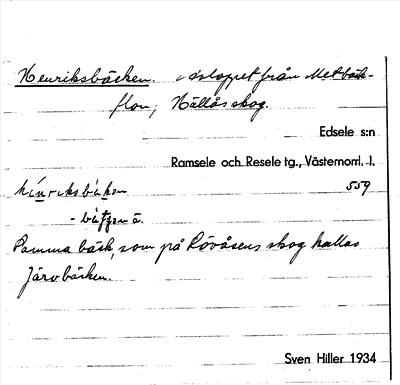 Henriksbäcken. avloppet från Metbäck-
flon; Hällåsskog.
Edsele s:n
Ramsele och Resele tg., Västernorrl. l.
hinriksbäkən 559
- bätjən ä.
Samma bäck, som på Rövåsens skog kallas
Järvbäcken.
Sven Hiller 1934